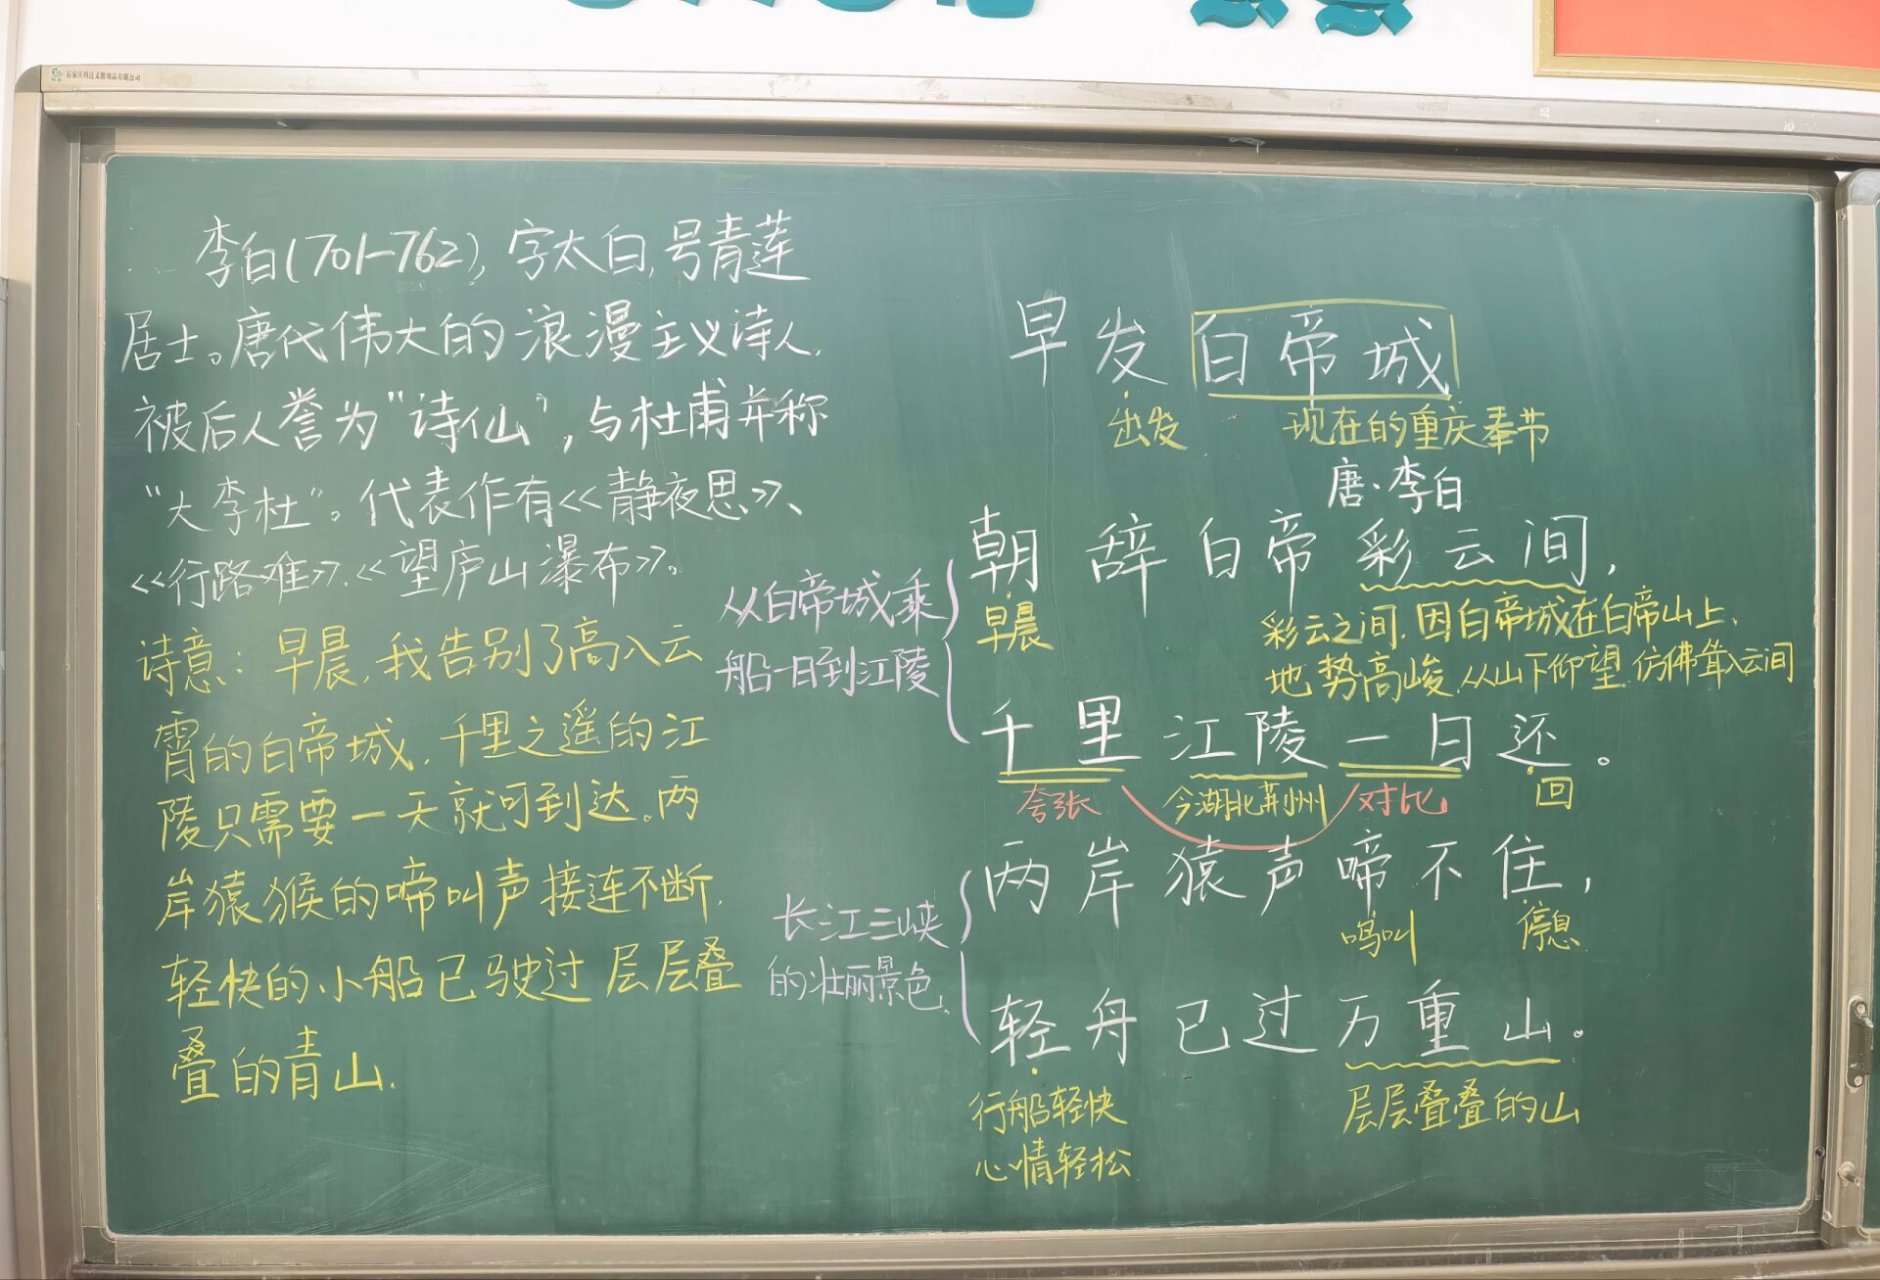 李白(701-762),字太白,号青莲
居士。唐代伟大的浪漫主义诗人,
被后人誉为"诗仙",与杜甫并称
"大李杜"。代表作有《静夜思》、
《行路难》、《望庐山瀑布》。
诗意:早晨,我告别了高入云
霄的白帝城,千里之遥的江
陵只需要一天就可到达。两
岸猿猴的啼叫声接连不断,
轻快的小船已驶过层层叠
叠的青山.
早发白帝城
出发 现在的重庆奉节
唐·李白
朝辞白帝彩云间,
早晨
彩云之间,因白帝城在白帝山上,
地势高峻,从山下仰望,仿佛耸入云间
从白帝城乘
船一日到江陵
千里江陵一日还。
夸张 今湖北荆州 对比 回
两岸猿声啼不住,
鸣叫 停息
长江三峡
的壮丽景色
轻舟已过万重山。
行船轻快
心情轻松
层层叠叠的山